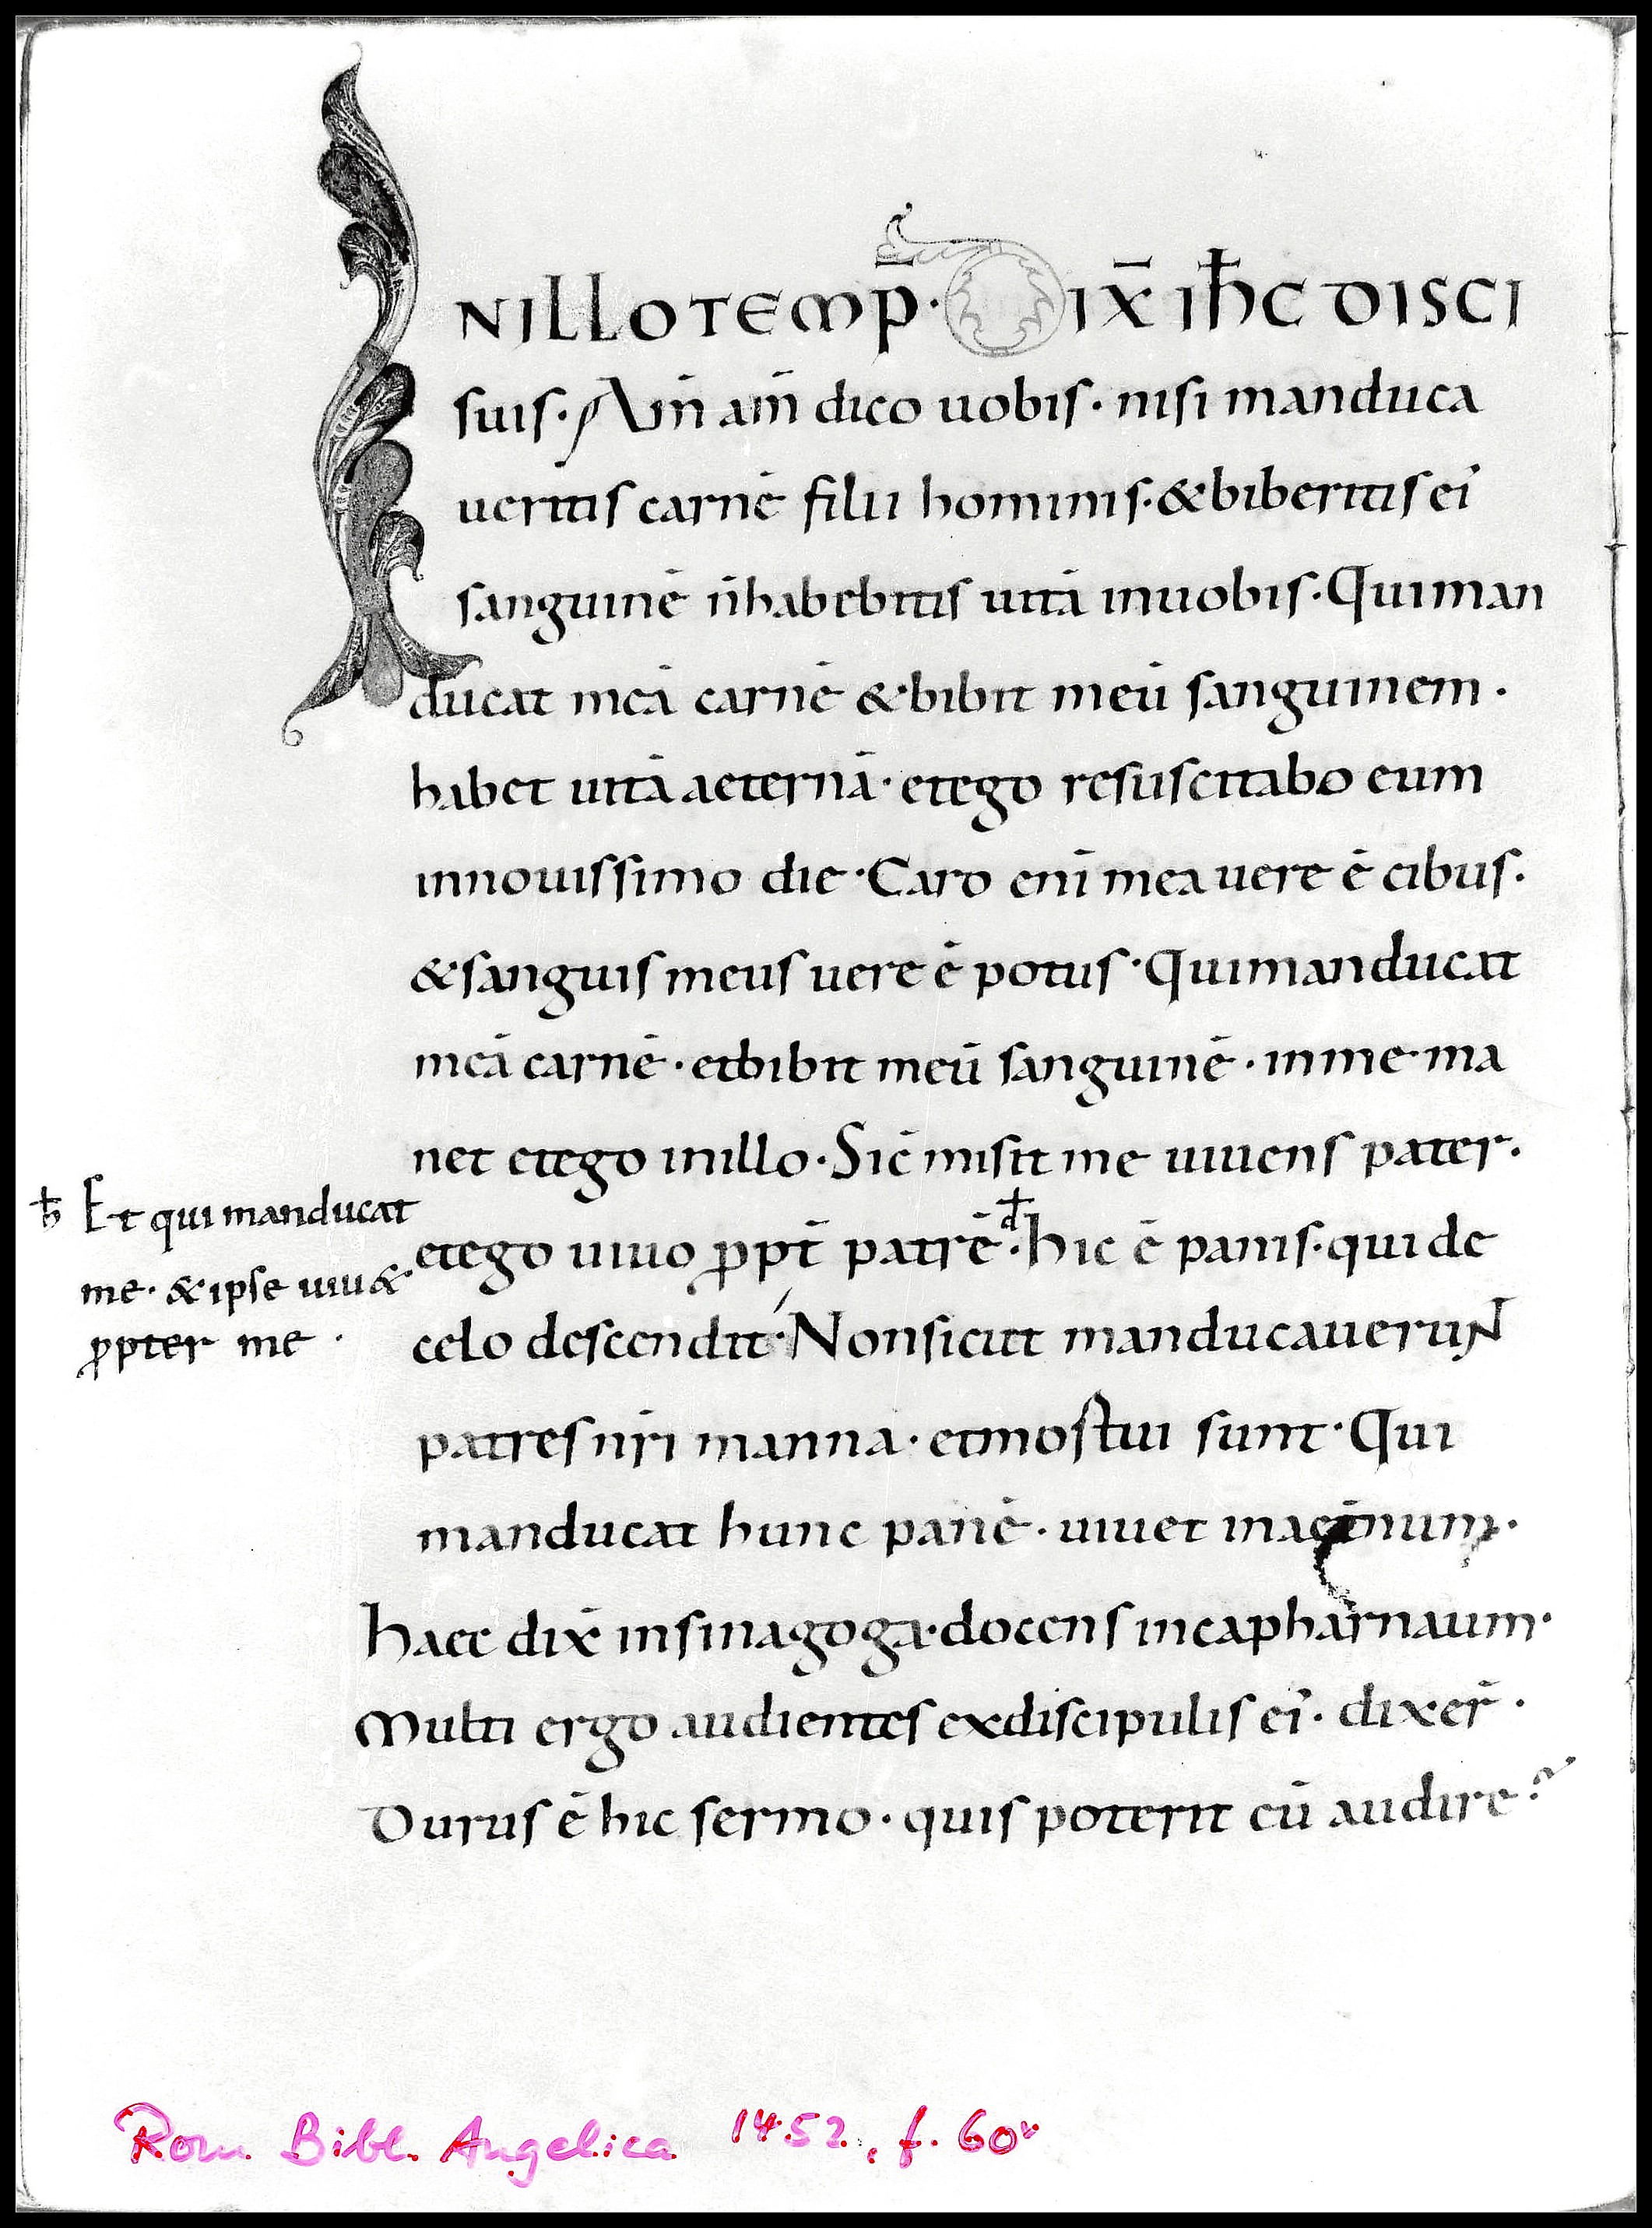 INILLOTEMP̄· DIX̄ IH̄C DISCI
suis· Am̄ am̄ dico uobis· nisi manduca
ueritis carnē filii hominis·&biberitis ei'
sanguinē n̄habebitis uitā inuobis·Quiman
ducat meā carnē &bibit meū sanguinem·
habet uitā aeternā· etego resuscitabo eum
innouissimo die·Caro enī meauere ē cibus·
&sanguis meus uere ē potus·Quimanducat
meā carnē· etbibit meū sanguinē· inme ma
net etego inillo·Sic̄ misit me uiuens pater·
etego uiuo ꝓpt̄ patrē·hic ē panis·qui de
ħ Et qui manducat
me· &ipse uiu&
ꝓpter me·
celo descendit·Nonsicut manducauerunt
patres nr̄i manna· etmortui sunt·Qui
manducat hunc panē· uiuet inaet̄num·
haec dix̄ insinagoga·docens incapharnaum·
Multi ergo audientes exdiscipulis ei'· dixer̄·
Durus ē hic sermo· quis poterit eū audire?
Rom Bibl. Angelica 1452, f. 60v